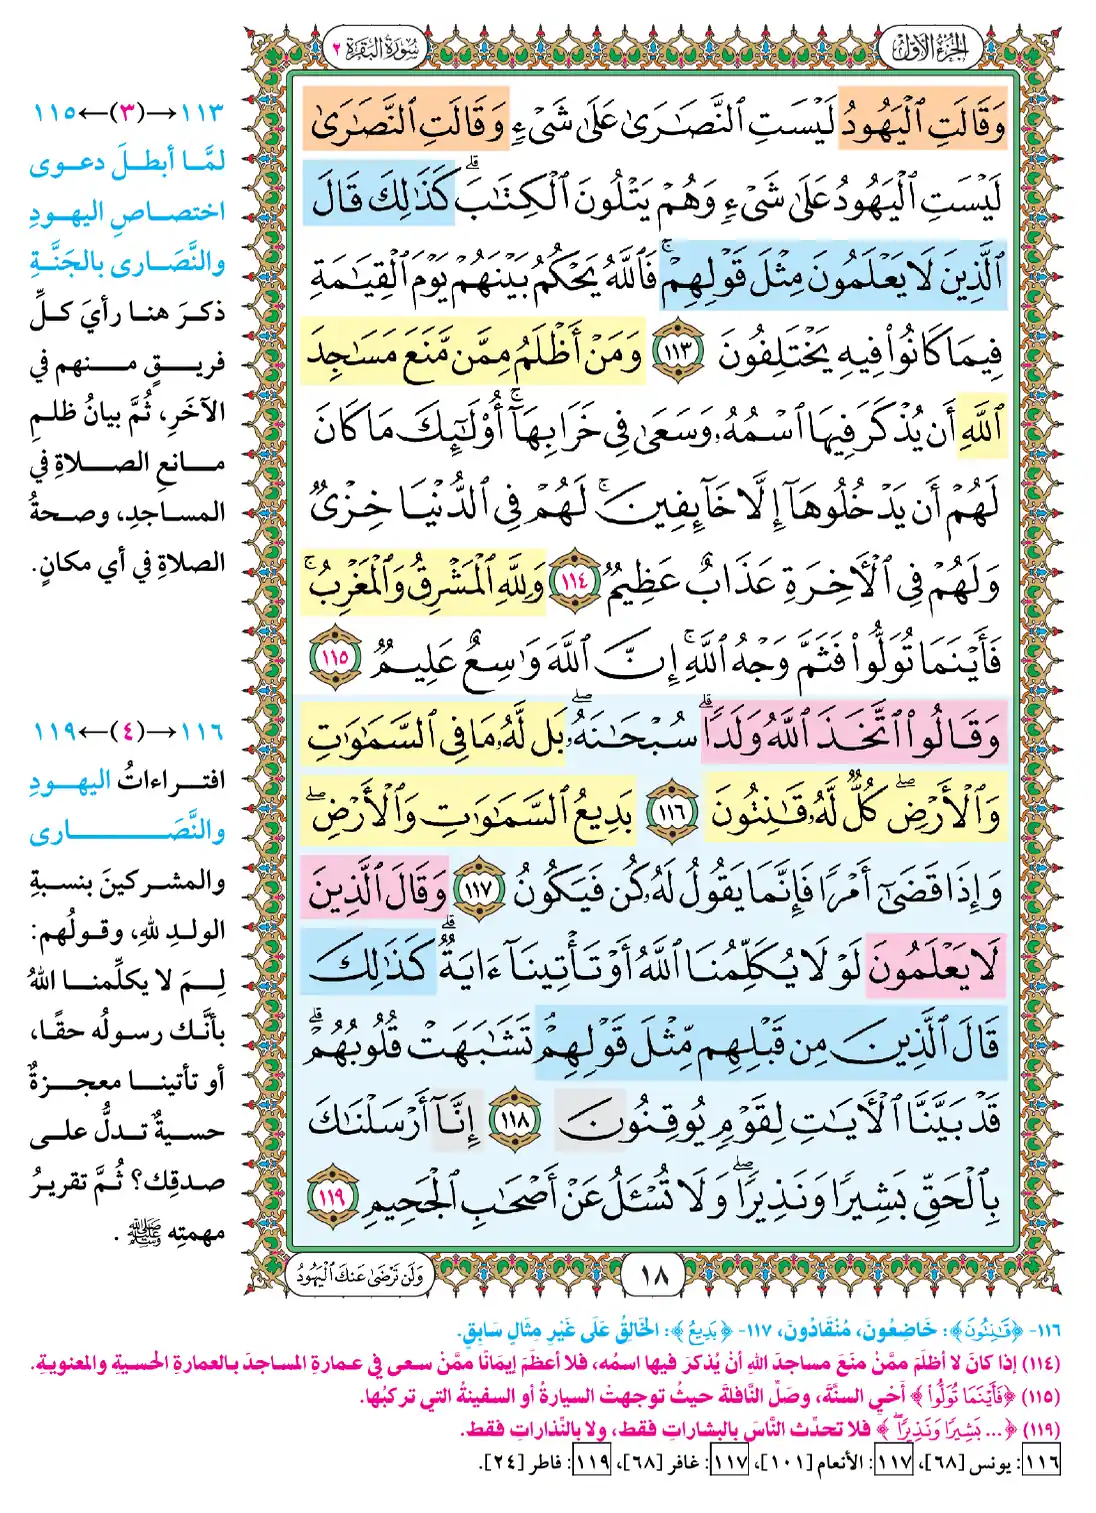 الجزء الأول
سورة البقرة ٢
وَقَالَتِ ٱلْيَهُودُ لَيْسَتِ ٱلنَّصَٰرَىٰ عَلَىٰ شَىْءٍ وَقَالَتِ ٱلنَّصَٰرَىٰ
لَيْسَتِ ٱلْيَهُودُ عَلَىٰ شَىْءٍ وَهُمْ يَتْلُونَ ٱلْكِتَٰبَۗ كَذَٰلِكَ قَالَ
ٱلَّذِينَ لَا يَعْلَمُونَ مِثْلَ قَوْلِهِمْۚ فَٱللَّهُ يَحْكُمُ بَيْنَهُمْ يَوْمَ ٱلْقِيَٰمَةِ
فِيمَا كَانُوا۟ فِيهِ يَخْتَلِفُونَ ١١٣ وَمَنْ أَظْلَمُ مِمَّن مَّنَعَ مَسَٰجِدَ
ٱللَّهِ أَن يُذْكَرَ فِيهَا ٱسْمُهُۥ وَسَعَىٰ فِى خَرَابِهَآۚ أُو۟لَٰٓئِكَ مَا كَانَ
لَهُمْ أَن يَدْخُلُوهَآ إِلَّا خَآئِفِينَۚ لَهُمْ فِى ٱلدُّنْيَا خِزْىٌ
وَلَهُمْ فِى ٱلْءَاخِرَةِ عَذَابٌ عَظِيمٌ ١١٤ وَلِلَّهِ ٱلْمَشْرِقُ وَٱلْمَغْرِبُۚ
فَأَيْنَمَا تُوَلُّوا۟ فَثَمَّ وَجْهُ ٱللَّهِۚ إِنَّ ٱللَّهَ وَٰسِعٌ عَلِيمٌ ١١٥
وَقَالُوا۟ ٱتَّخَذَ ٱللَّهُ وَلَدًاۗ سُبْحَٰنَهُۥۖ بَل لَّهُۥ مَا فِى ٱلسَّمَٰوَٰتِ
وَٱلْأَرْضِۖ كُلٌّ لَّهُۥ قَٰنِتُونَ ١١٦ بَدِيعُ ٱلسَّمَٰوَٰتِ وَٱلْأَرْضِۖ
وَإِذَا قَضَىٰٓ أَمْرًا فَإِنَّمَا يَقُولُ لَهُۥ كُن فَيَكُونُ ١١٧ وَقَالَ ٱلَّذِينَ
لَا يَعْلَمُونَ لَوْلَا يُكَلِّمُنَا ٱللَّهُ أَوْ تَأْتِينَآ ءَايَةٌۗ كَذَٰلِكَ
قَالَ ٱلَّذِينَ مِن قَبْلِهِم مِّثْلَ قَوْلِهِمْۘ تَشَٰبَهَتْ قُلُوبُهُمْۗ
قَدْ بَيَّنَّا ٱلْءَايَٰتِ لِقَوْمٍ يُوقِنُونَ ١١٨ إِنَّآ أَرْسَلْنَٰكَ
بِٱلْحَقِّ بَشِيرًا وَنَذِيرًاۖ وَلَا تُسْـَٔلُ عَنْ أَصْحَٰبِ ٱلْجَحِيمِ ١١٩
١٨
وَلَن تَرْضَىٰ عَنكَ ٱلْيَهُودُ
١١٣→(٣)←١١٥
لمَّا أبطلَ دعوى
اختصاصِ اليهودِ
والنَّصَارى بالجَنَّةِ
ذكرَ هنا رأيَ كلِّ
فريقٍ منهم في
الآخَرِ، ثُمَّ بيانُ ظلمِ
مانعِ الصلاةِ في
المساجدِ، وصحةُ
الصلاةِ في أي مكانٍ.
١١٦→(٤)←١١٩
افتراءاتُ اليهودِ
والنَّصَارى
والمشركينَ بنسبةِ
الولدِ للهِ، وقولُهم:
لِمَ لا يكلِّمنا اللهُ
بأنَّك رسولُه حقًا،
أو تأتينا معجزةٌ
حسيةٌ تدلُّ على
صدقِك؟ ثُمَّ تقريرُ
مهمتِه ﷺ.
١١٦- ﴿قَٰنِتُونَ﴾: خَاضِعُونَ، مُنْقَادُونَ، ١١٧- ﴿بَدِيعُ﴾: الخَالِقُ عَلَى غَيْرِ مِثَالٍ سَابِقٍ.
(١١٤) إذا كانَ لا أظلمَ ممَّنْ منَعَ مساجدَ اللهِ أنْ يُذكرَ فيها اسمُه، فلا أعظمَ إيمَانًا ممَّنْ سعى في عمارةِ المساجدَ بالعمارةِ الحسيةِ والمعنويةِ.
(١١٥) ﴿فَأَيْنَمَا تُوَلُّوا۟﴾ أَحْيِ السنَّةَ، وصَلِّ النَّافلةَ حيثُ توجهتْ السيارةُ أو السفينةُ التي تركبُها.
(١١٩) ﴿... بَشِيرًا وَنَذِيرًاۖ﴾ فلا تحدِّث النَّاسَ بالبشاراتِ فقط، ولا بالنِّذاراتِ فقط.
١١٦: يونس [٦٨]، ١١٧: الأنعام [١٠١]، ١١٧: غافر [٦٨]، ١١٩: فاطر [٢٤].